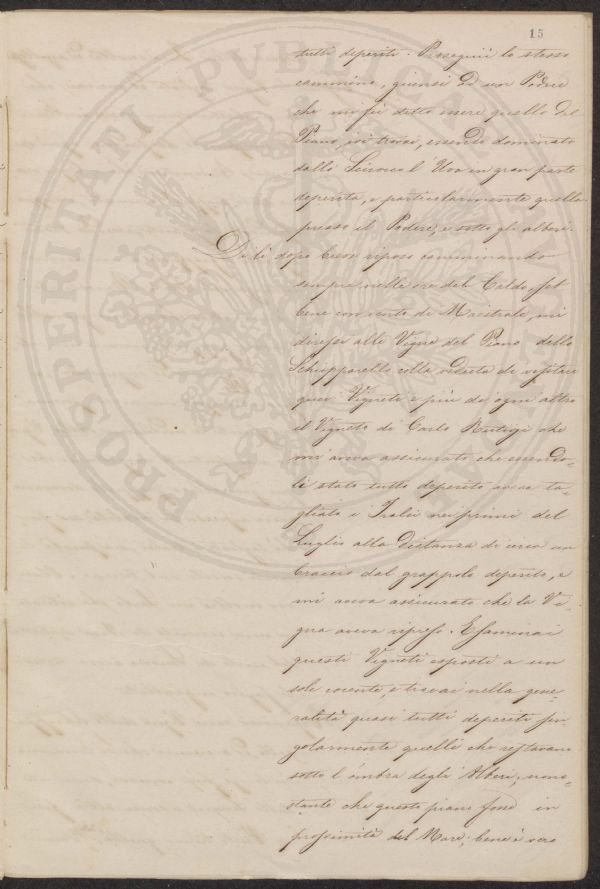 15
tutti deperiti. Proseguii lo stesso
cammino, giunsi ad un Podere
che mi fù detto essere quello del
Piano, ivi trovai, essendo dominato
dallo Scirocco l'Uva in gran parte
deperita, e particolarmente quella
presso il Podere, e sotto gli alberi.
Di lì dopo breve riposo camminando
sempre nelle ore del Caldo seb
bene con vento di Maestrale, mi
diressi alle Vigne del Piano dello
Schiopparello colla veduta di visitare
quei Vigneti e più da ogni altro
il Vigneto di Carlo che
mi aveva assicurato che essendo-
li stato tutto deperito aveva ta-
gliato i Tralci nei primi del
Luglio alla distanza di circa un
braccio dal grappolo deperito, e
mi aveva assicurato che la Vi-
gna aveva ripreso. Esaminai
questi Vigneti esposti a un
sole cocente, e trovai nella gene-
ralità quasi tutti deperiti sin-
golarmente quelli che restavano
sotto l'ombra degli Alberi, nono-
stante che questo piano fosse in
prossimità del Mare; bene è vero
PROSPERITATI PVBLICAE